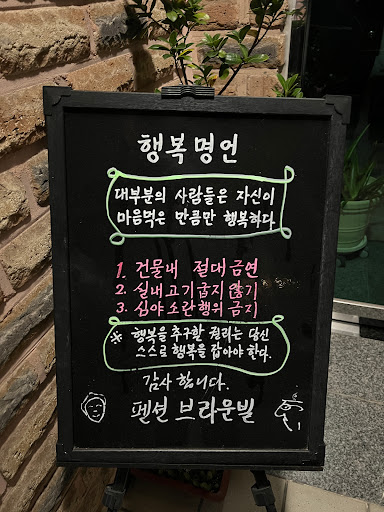 행복명언
대부분의 사람들은 자신이
마음먹은 만큼만 행복하다.
1. 건물내 절대금연
2. 실내고기굽지않기
3. 심야소란행위금지
※ 행복을 추구할 권리는 당신
스스로 행복을 잡아야 한다.
감사합니다.
펜션 브라운빌